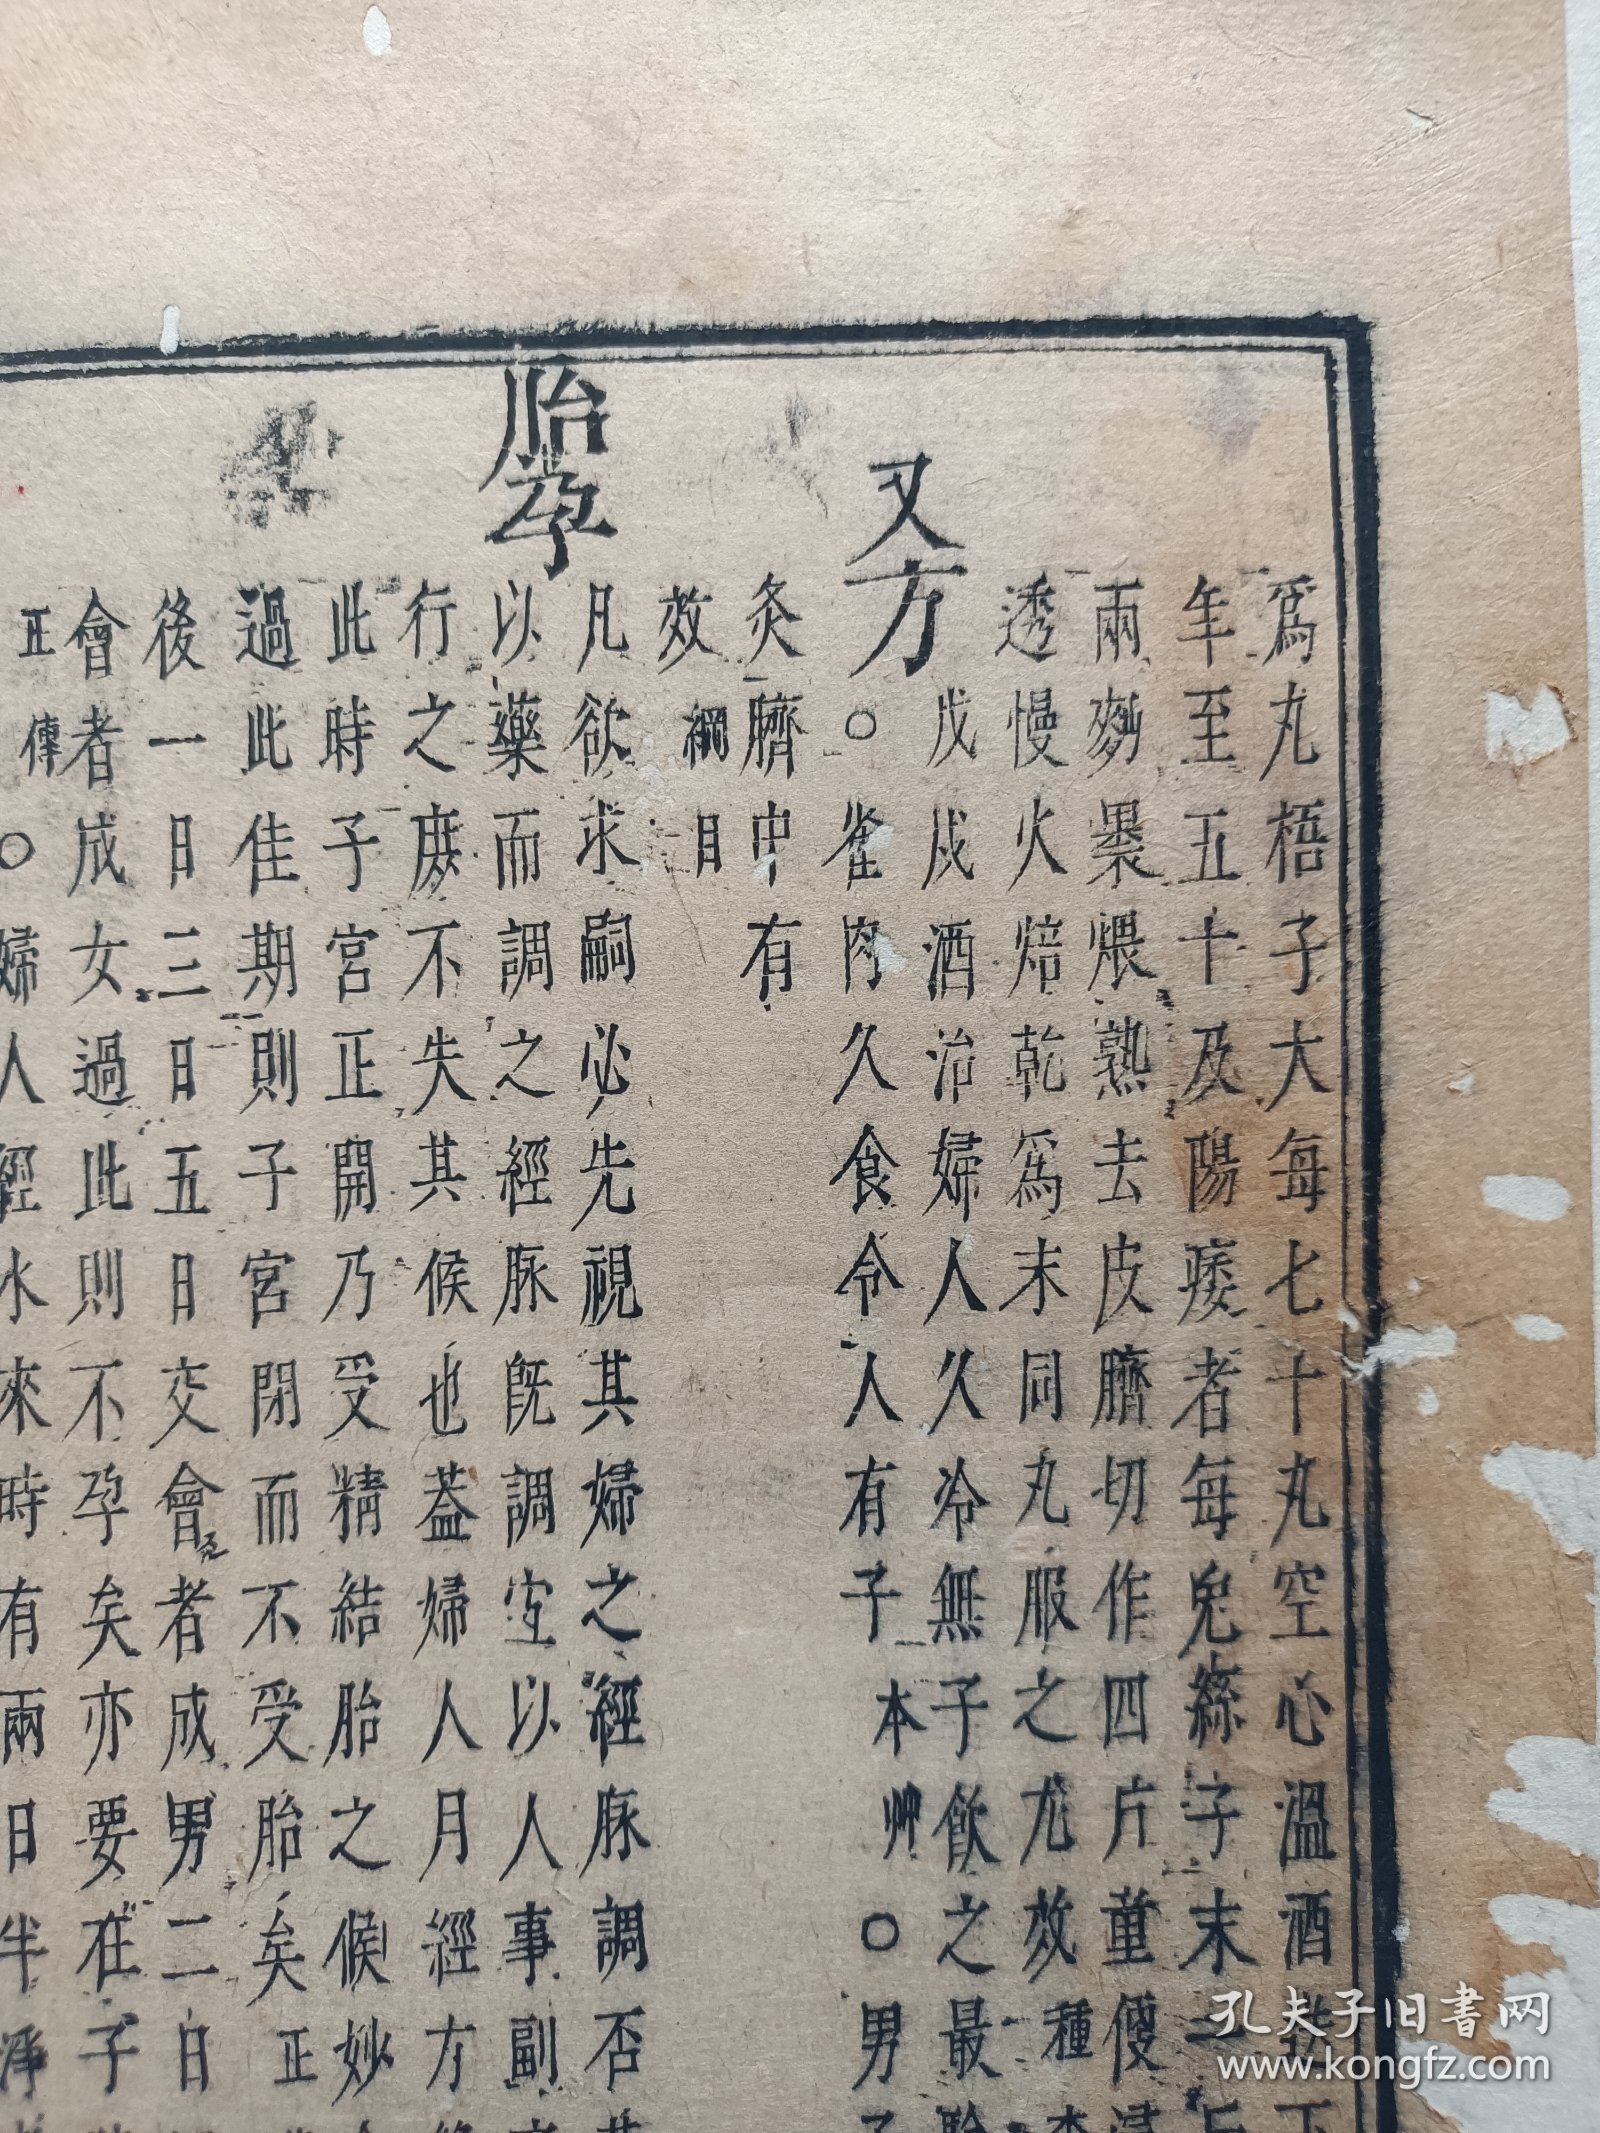 爲丸梧子大每七十丸空心溫酒
年至五十及陽痿者每兔絲子末一
兩麪褁煨熟去皮臍切作四片童便浸
透慢火焙乾爲末同丸服之尤效種
又方
戊戌酒治婦人久冷無子飮之最
○雀肉久食令人有子本艸○男子
灸臍中有
效綱目
胎孕
凡欲求嗣必先視其婦之經脉調否
以藥而調之經脉旣調宜以人事副
行之庶不失其候也蓋婦人月經方
此時子宮正開乃受精結胎之候妙
過此佳期則子宮閉而不受胎矣正
後一日三日五日交會者成男二日
會者成女過此則不孕矣亦要在子
正傳○婦人經水來時有兩日半淨
孔夫子旧書网
www.kongfz.com